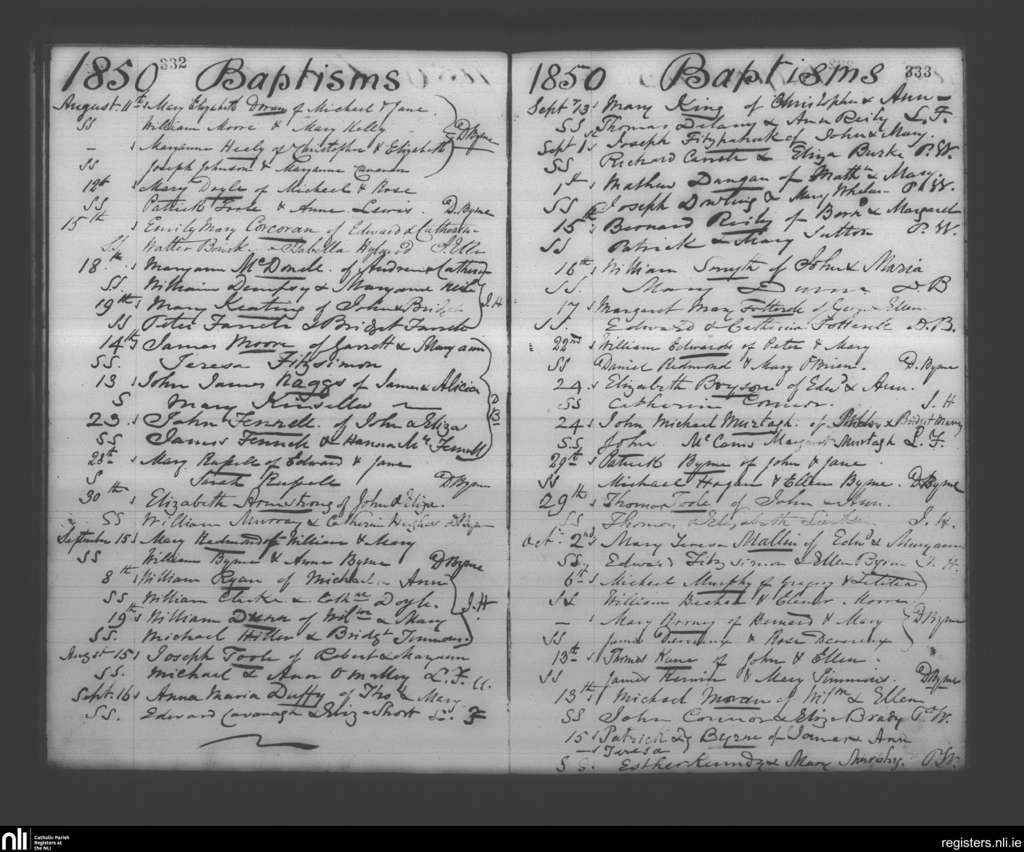 1850 332 Baptisms
August 11th s Mary Elizabeth Doran of Michael & Jane
SS William Moore & Mary Kelly
– s Maryanne Heely of Christopher & Elizabeth D Byrne
SS Joseph Johnson & Maryanne
12th s Mary Doyle of Michael & Rose
SS Patrick Toole & Anne Lewis. D. Byrne
15th s Emily Mary Corcoran of Edward & Catherine
SS Walter & Isabella
18.th s Maryann McDonell of Andrew & Catherine
SS. William Dempsey & Maryanne
19th s Mary Keating of John & Bridget J. H
SS Peter Farrell & Bridget Farrell
14th s James Moore of Garrett & Maryann
SS. Teresa Fitzsimon
13 s John James Naggs of James & Alicia
S Mary Kinsella
23 s John Fennell of John & Eliza
SS James Fennell & Hanna Fennell
28th s Mary Russell of Edward & Jane
S Sarah Russell D Byrne
30th s Elizabeth Armstrong of John & Eliza
SS William Murray & Catherine Hughes D Byrne
September 15 s Mary Redmond of William & Mary
SS William Byrne & Anne Byrne D Byrne
8th s William Ryan of Michael & Ann
SS. William Clarke & Doyle. J. H
19th s William Dunn of & Mary
SS. Michael & Bridgt Timmons
August 15 s Joseph Toole of Robert & Maryann
SS. Michael & Ann O Malley L. F.
Sept. 16 s Anna Maria Duffy of Thos & Mary
SS. Edward Cavanagh & Eliza Short
1850 Baptisms 333
Sept 13 s Mary King of Christopher & Ann
SS Thomas Delany & Ann Reily L. F.
Sept 1st s Joseph Fitzpatrick of John & Mary.
SS Richard & Eliza Burke P. W.
1st s Mathew Dungan of Mathw & Mary
SS Joseph Dowling & Mary Whelan P. W.
15th s Bernard Reily of Bernd & Margaret
SS Patrick & Mary Sutton P. W
16th s William Smyth of John & Maria
SS. Mary Dunn D B
17 s Margaret Mary of George & Ellen
SS. Edward & Catherine D. B.
22nd s William Edwards of Peter & Mary
SS Daniel Redmond & Mary O'Brien. D. Byrne
24 s Elizabeth Bryson of Edwd & Ann.
SS Catherine Connor. J. H
24 s John Michael Murtagh of & Bridget Mary
SS. John McCann Margaret Murtagh L. F.
29th s Patrick Byrne of John & Jane
SS Michael Hogan & Ellen Byrne D Byrne
29th s Thomas Toole of John & Ann.
SS Thomas & Elizabeth J. H.
Oct. 2nd s Mary Teresa of Edwd & Maryann
SS Edward Fitzsimon & Ellen Byrne J. H.
6th s Michael Murphy of Gregory & Letitia
SS William & Elenor Moore
– s Mary of Bernard & Mary D Byrne
SS James Devereux & Rose Devereux
13th s Thomas Kane of John & Ellen.
SS James & Mary Timmons. D Byrne
13th s Michael Moran of Willm & Ellen
SS John Connor & Eliza Brady P. W.
15 s Patrick Byrne of James & Ann
– s Teresa
SS. Esther Kennedy & Mary Murphy. P. W.
nli Catholic Parish
Registers at
the NLI
registers.nli.ie